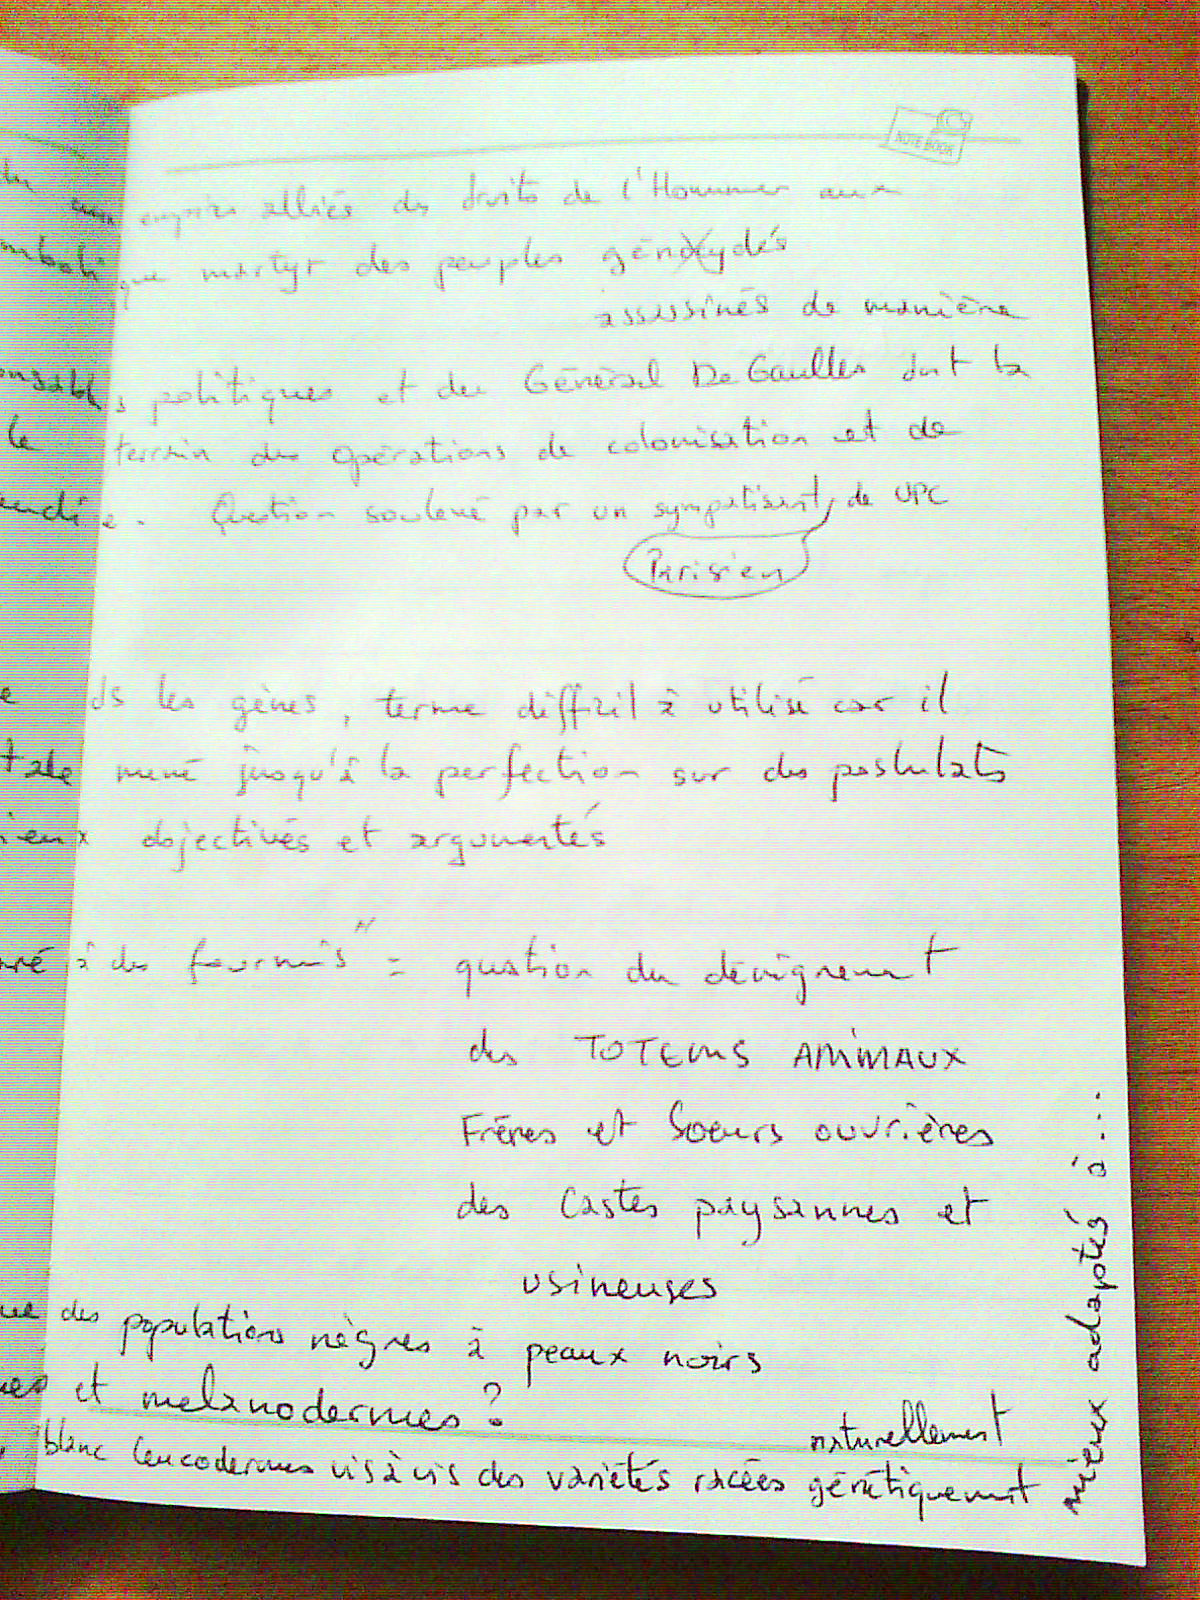 NOTE BOOK
alliés des droits de l'Hommes aux
que martyr des peuples génoxydés
assassinés de manière
politiques et du Général De Gaulles dont la
le terrain des opérations de colonisation et de
Question soulevé par un sympatisant de UPC
Parisien
ds les gènes, terme diffizil à utilisé car il
mené jusqu'à la perfection sur des postulats
objectivés et argumentés
à des fourmis" = question du dénigrement
des TOTEMS ANIMAUX
Frères et Soeurs ouvrières
des Castes paysannes et
usineuses
des populations nègres à peaux noirs
et melanodermes ?
naturellement
blanc leucodermes vis à vis des variétés racées génétiquement
mieux adaptés à ...